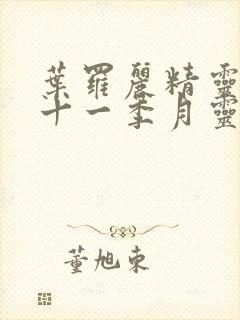 葉羅麗精靈
十一季月靈
董旭東